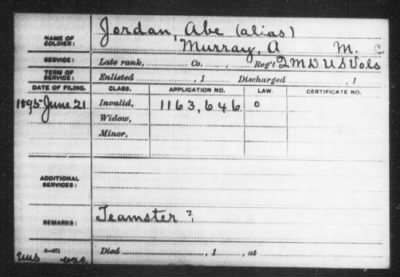 Jordan, Abe (alias)
NAME OF SOLDIER: Murray, A M.
SERVICE: Late rank, Co. , Reg't 2 MD U S Vols
TERM OF SERVICE: Enlisted , 1 Discharged , 1
DATE OF FILING. CLASS. APPLICATION NO. LAW. CERTIFICATE NO.
1895-June 21 Invalid, 1163,646 0
Widow,
Minor,
ADDITIONAL SERVICES:
REMARKS: Teamster ?
Died , 1 , at